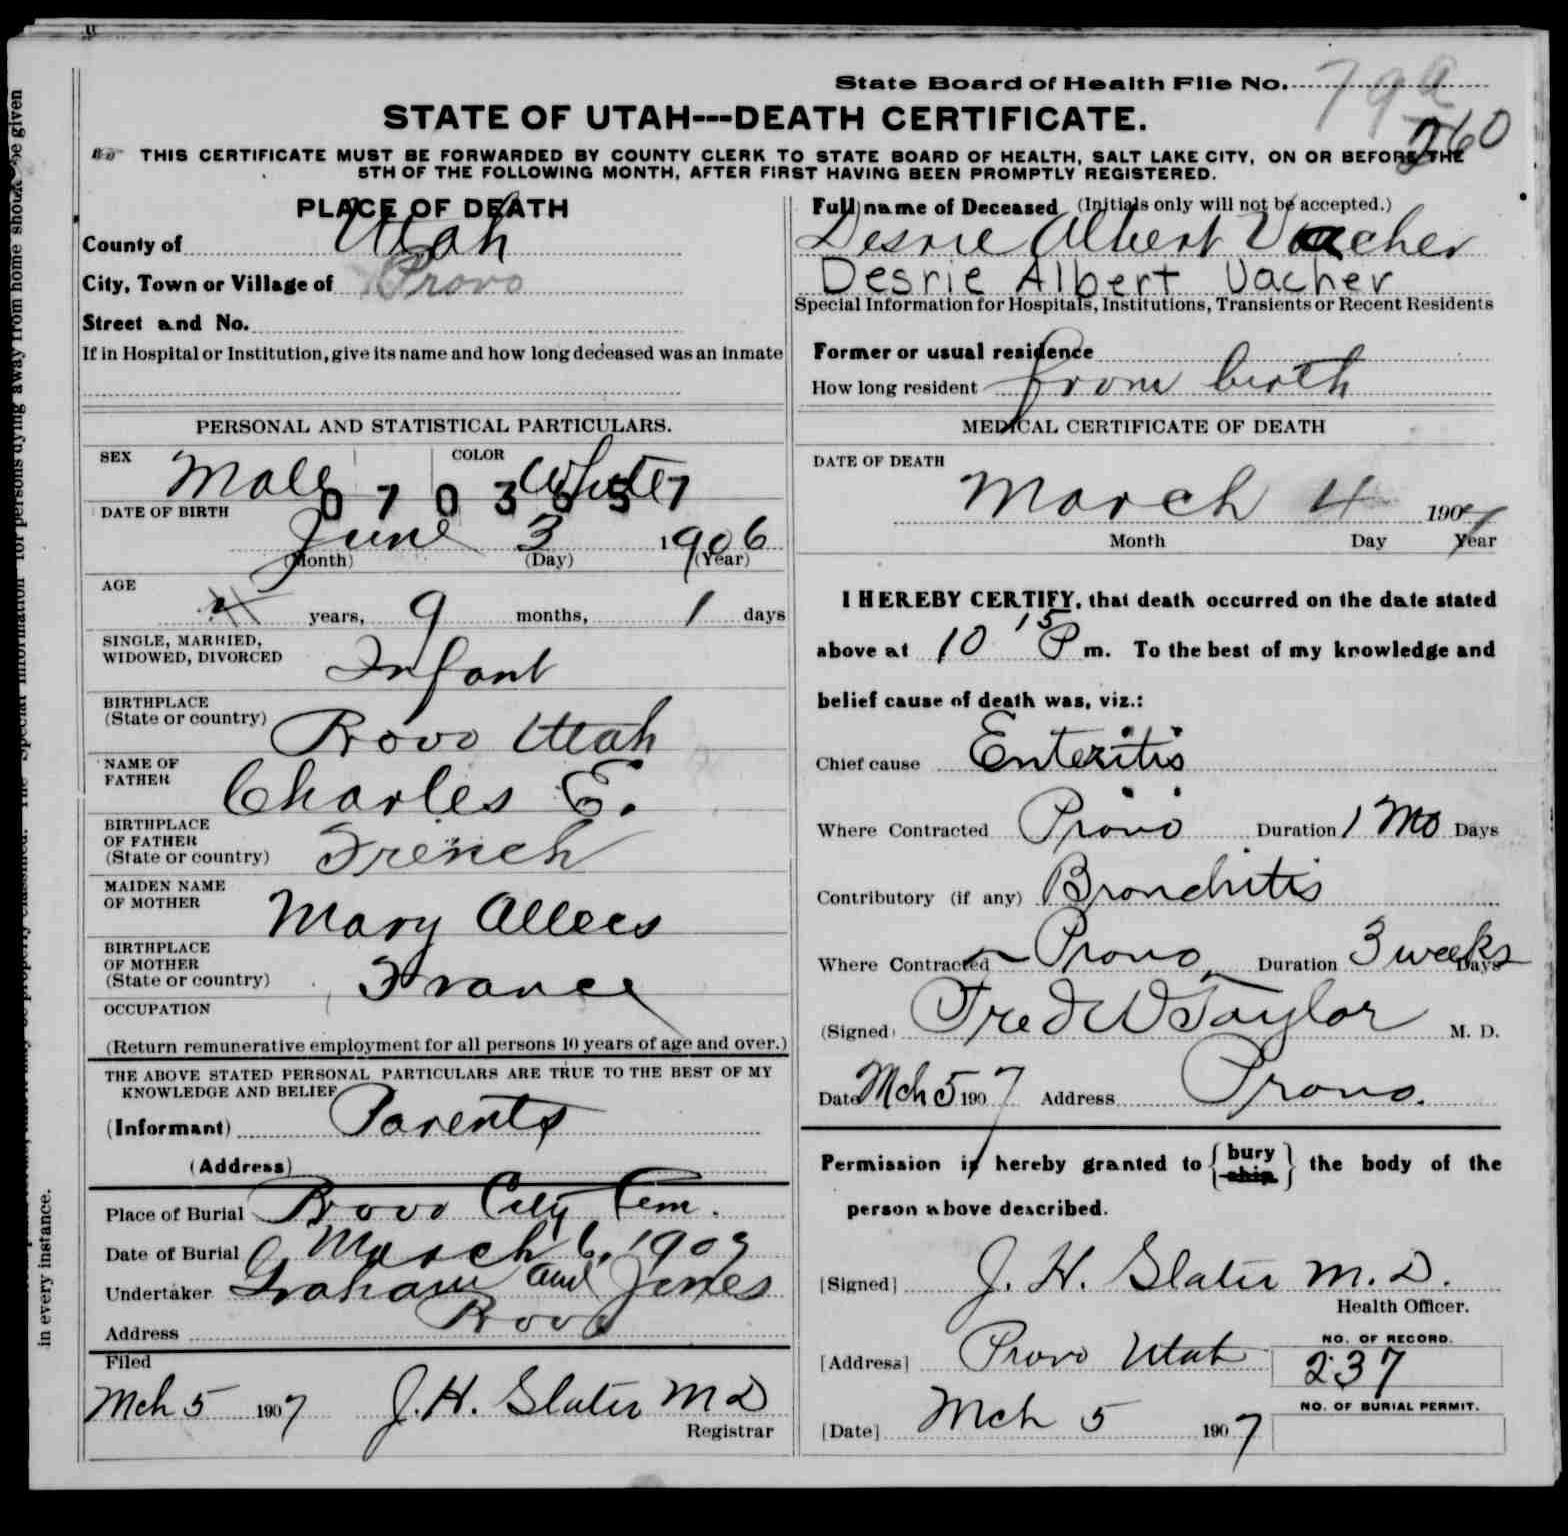 State Board of Health File No. 79a
260
STATE OF UTAH---DEATH CERTIFICATE.
THIS CERTIFICATE MUST BE FORWARDED BY COUNTY CLERK TO STATE BOARD OF HEALTH, SALT LAKE CITY, ON OR BEFORE THE
5TH OF THE FOLLOWING MONTH, AFTER FIRST HAVING BEEN PROMPTLY REGISTERED.
PLACE OF DEATH
County of Utah
City, Town or Village of Provo
Street and No.
If in Hospital or Institution, give its name and how long deceased was an inmate
Full name of Deceased (Initials only will not be accepted.)
Desrie Albert Vacher
Desrie Albert Vacher
Special Information for Hospitals, Institutions, Transients or Recent Residents
Former or usual residence
How long resident from birth
PERSONAL AND STATISTICAL PARTICULARS.
SEX Male COLOR White
DATE OF BIRTH
June 3 1906
(Month) (Day) (Year)
AGE
years, 9 months, 1 days
SINGLE, MARRIED,
WIDOWED, DIVORCED Infant
BIRTHPLACE
(State or country) Provo Utah
NAME OF
FATHER Charles E.
BIRTHPLACE
OF FATHER
(State or country) French
MAIDEN NAME
OF MOTHER Mary Allees
BIRTHPLACE
OF MOTHER
(State or country) France
OCCUPATION
(Return remunerative employment for all persons 10 years of age and over.)
THE ABOVE STATED PERSONAL PARTICULARS ARE TRUE TO THE BEST OF MY
KNOWLEDGE AND BELIEF
(Informant) Parents
(Address)
Place of Burial Provo City Cem.
Date of Burial March 6, 1907
Undertaker Graham and Jones
Address Provo
Filed
Mch 5 1907 J. H. Slater M D
Registrar
MEDICAL CERTIFICATE OF DEATH
DATE OF DEATH
March 4 1907
Month Day Year
I HEREBY CERTIFY, that death occurred on the date stated
above at 10 15 P m. To the best of my knowledge and
belief cause of death was, viz.:
Chief cause Enteritis
Where Contracted Provo Duration 1 Mo Days
Contributory (if any) Bronchitis
Where Contracted Provo Duration 3 weeks Days
(Signed) Fred W Taylor M. D.
Date Mch 5 1907 Address Provo.
Permission is hereby granted to {bury ship} the body of the
person above described.
[Signed] J. H. Slater M. D.
Health Officer.
[Address] Provo Utah
NO. OF RECORD.
237
NO. OF BURIAL PERMIT.
[Date] Mch 5 1907
in every instance.